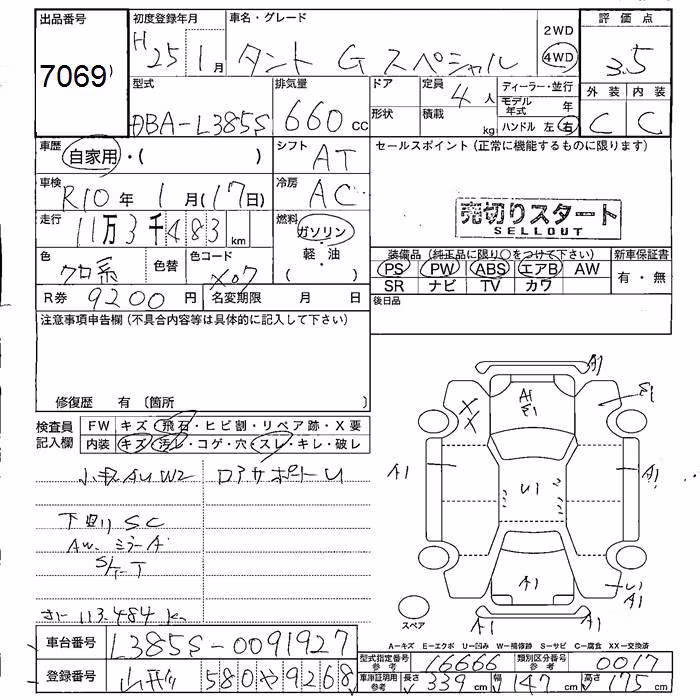 出品番号 初度登録年月 車名・グレード 2WD 4WD 評価点
7069 H25 1月 タント G スペシャル 3.5
外装 内装
C C
型式 排気量 ドア 定員 4人 ディーラー・並行
DBA-L385S 660cc 形状 積載 kg モデル年式 年
ハンドル 左 右
車歴 自家用・( ) シフト AT セールスポイント(正常に機能するものに限ります)
車検 R10年 1月(17日) 冷房 AC
売切りスタート
SELLOUT
走行 11万3千483km 燃料 ガソリン・軽・油( )
色 クロ系 色替 色コード X07
装備品(純正品に限り○をつけて下さい) 新車保証書
PS PW ABS エアB AW 有・無
SR ナビ TV カワ
R券 9200円 名変期限 月 日 後日品
注意事項申告欄(不具合内容等は具体的に記入して下さい)
修復歴 有 〔箇所 〕
検査員記入欄 FW キズ・飛石・ヒビ割・リペア跡・X要
内装 キズ・汚レ・コゲ・穴・スレ・キレ・破レ
AU W2 ロアサポートU
下回り SC
AW. ミラーA
113.484 K
A1
A1
E1
X
X
E1
A1
A1
U1
A1
U1
A1
A1
A1
スペア
A-キズ E-エクボ U-凹み W-補修跡 S-サビ C-腐食 XX-交換済
車台番号 L385S-0091927
型式指定番号 参考 16666 類別区分番号 参考 0017
登録番号 580 や 9268
車庫証明用 参考 長さ 339cm 幅 147cm 高さ 175cm